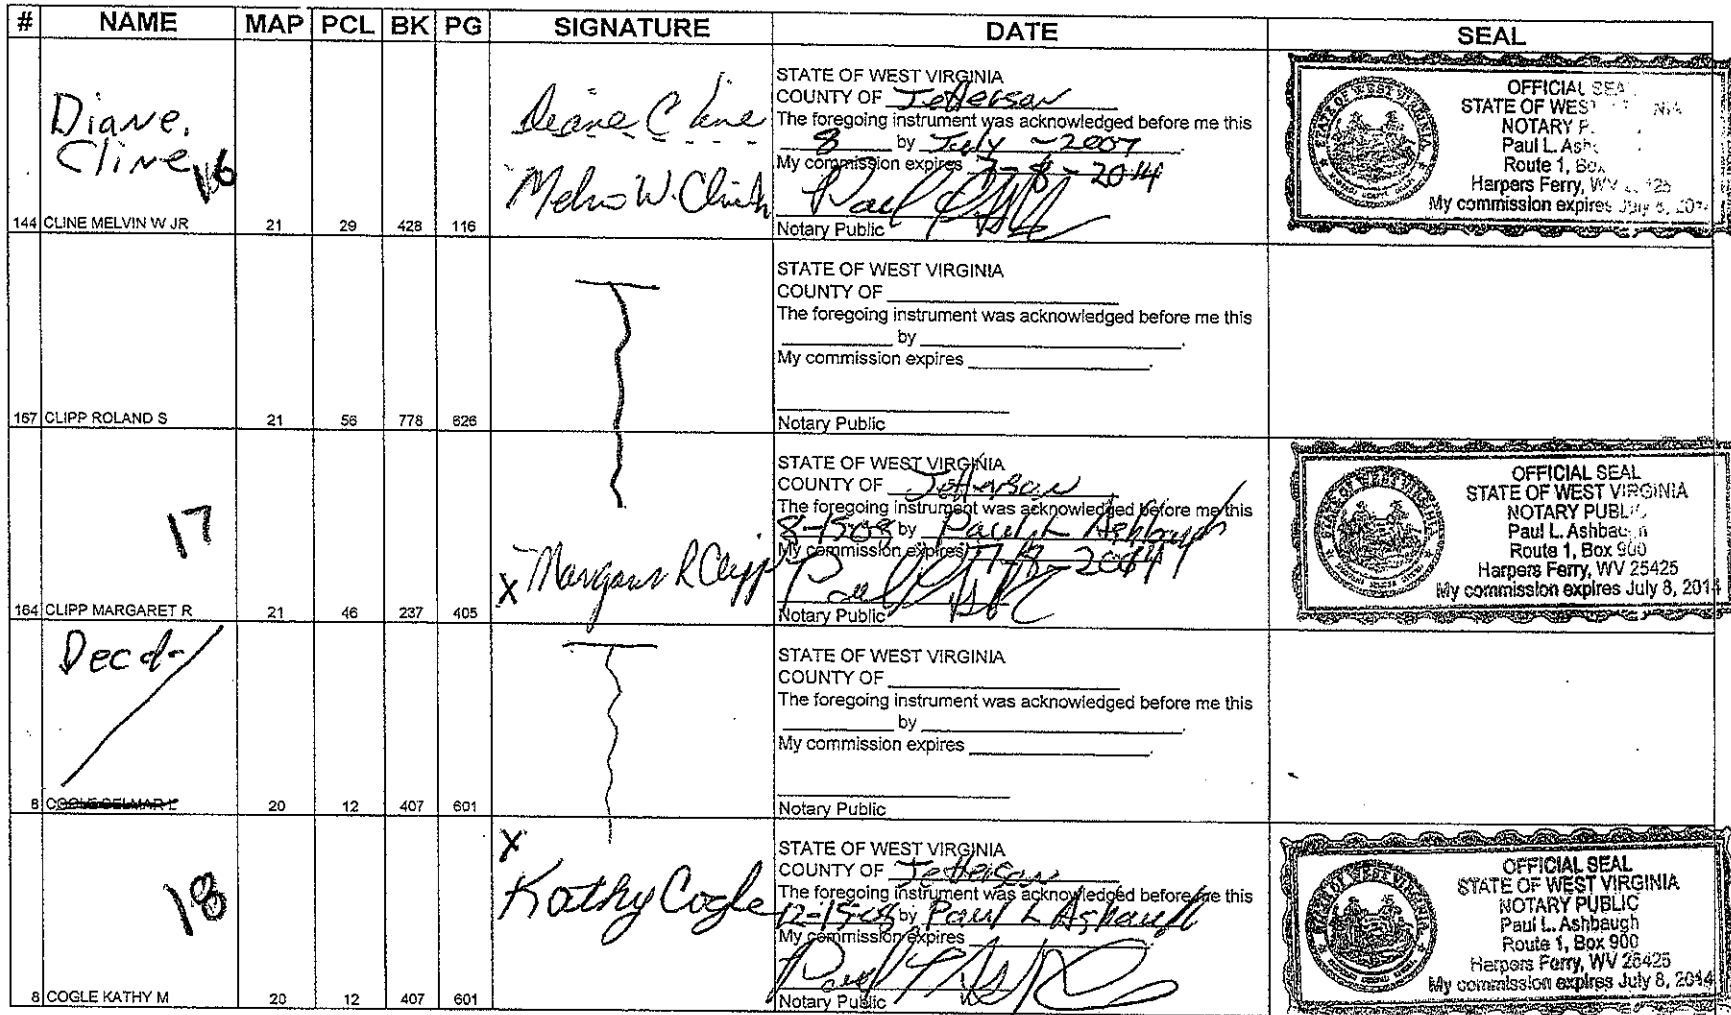 # NAME MAP PCL BK PG SIGNATURE DATE SEAL
Diane.
Cline
16
144 CLINE MELVIN W JR 21 29 428 116
Diane Cline
Melvin W. Cline Jr
STATE OF WEST VIRGINIA
COUNTY OF Jefferson
The foregoing instrument was acknowledged before me this
8 by July - 2007.
My commission expires 7-8-2014
Notary Public
OFFICIAL SEA
STATE OF WES NIA
NOTARY P
Paul L. Ash
Route 1, Box
Harpers Ferry, WV 25
My commission expires July 8, 201
167 CLIPP ROLAND S 21 56 778 626
STATE OF WEST VIRGINIA
COUNTY OF
The foregoing instrument was acknowledged before me this
by
My commission expires
Notary Public
17
164 CLIPP MARGARET R 21 46 237 405
X Margaret R Clipp
STATE OF WEST VIRGINIA
COUNTY OF Jefferson
The foregoing instrument was acknowledged before me this
8-15-08 by Paul L Ashbaugh
My commission expires 7-8-2014
Notary Public
OFFICIAL SEAL
STATE OF WEST VIRGINIA
NOTARY PUBLIC
Paul L. Ashbaugh
Route 1, Box 900
Harpers Ferry, WV 25425
My commission expires July 8, 2014
Dec d-
8 COGLE DELMAR L 20 12 407 601
STATE OF WEST VIRGINIA
COUNTY OF
The foregoing instrument was acknowledged before me this
by
My commission expires
Notary Public
18
8 COGLE KATHY M 20 12 407 601
X
Kathy Cogle
STATE OF WEST VIRGINIA
COUNTY OF Jefferson
The foregoing instrument was acknowledged before me this
12-15-08 by Paul L Ashbaugh
My commission expires
Notary Public
OFFICIAL SEAL
STATE OF WEST VIRGINIA
NOTARY PUBLIC
Paul L. Ashbaugh
Route 1, Box 900
Harpers Ferry, WV 25425
My commission expires July 8, 2014